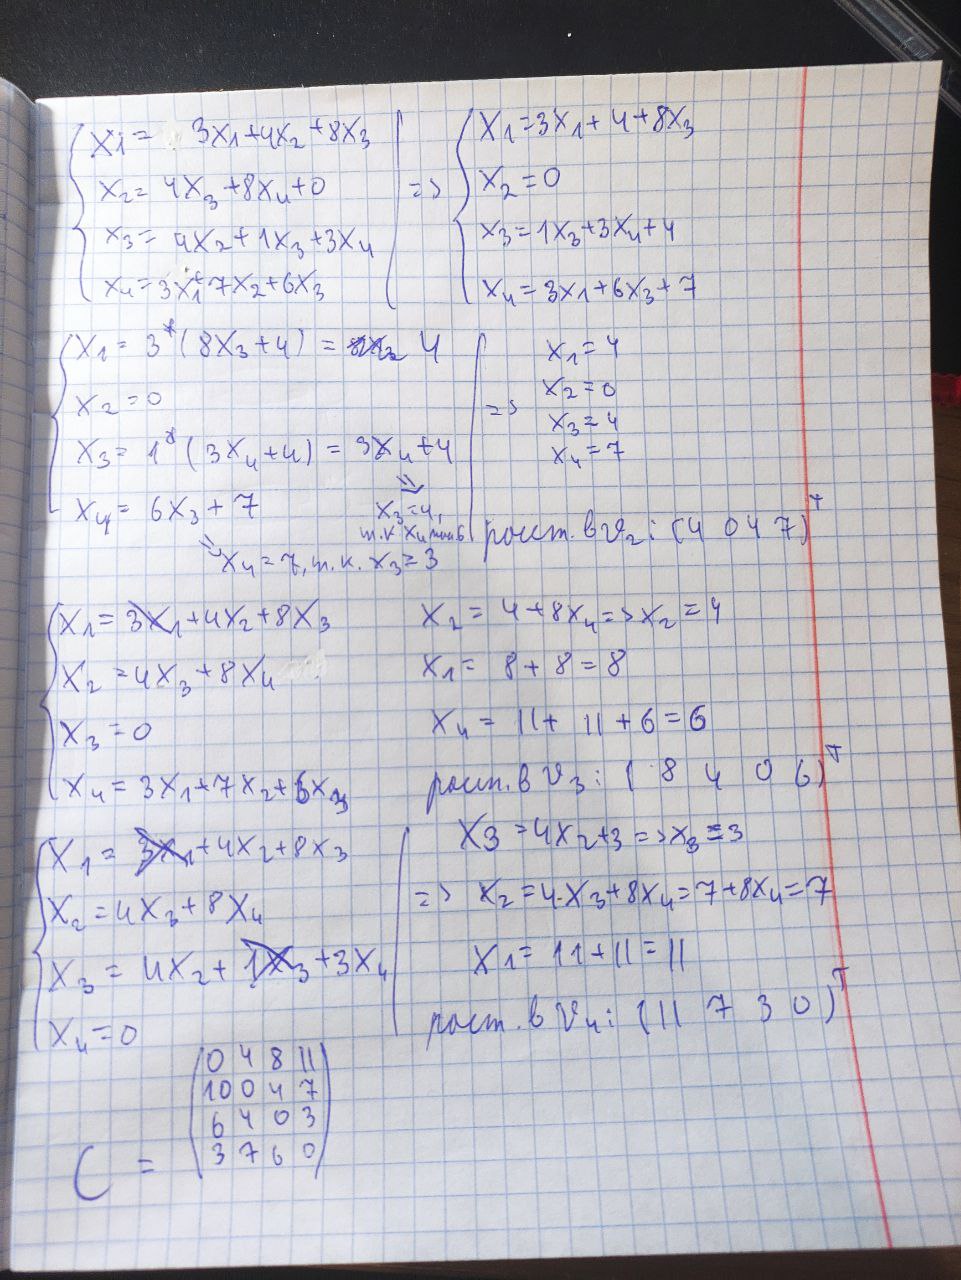 X1 = 3X1+4X2+8X3
X2 = 4X3+8X4+0
X3 = 4X2+1X3+3X4
X4 = 3X1+7X2+6X3
=>
X1=3X1+4+8X3
X2=0
X3=1X3+3X4+4
X4=3X1+6X3+7
X1 = 3*(8X3+4) = 4
X2=0
X3= 1*(3X4+4) = 3X4+4
X4= 6X3+7
X3=4,
т.к X4
X4=7, т.к. X3=3
=>
X1=4
X2=0
X3=4
X4=7
расст. в V2: (4 0 4 7)T
X1= 3X1+4X2+8X3
X2=4X3+8X4
X3=0
X4=3X1+7X2+6X3
X2= 4+8X4=>X2=4
X1= 8+8=8
X4= 11+ 11+6=6
расст. в V3: (8 4 0 6)T
X1= 3X1+4X2+8X3
X2=4X3+8X4
X3= 4X2+1X3+3X4
X4=0
X3=4X2+3=>X3=3
=> X2=4·X3+8X4=7+8X4=7
X1= 11+11=11
расст. в V4: (11 7 3 0)T
C =
0 4 8 11
10 0 4 7
6 4 0 3
3 7 6 0